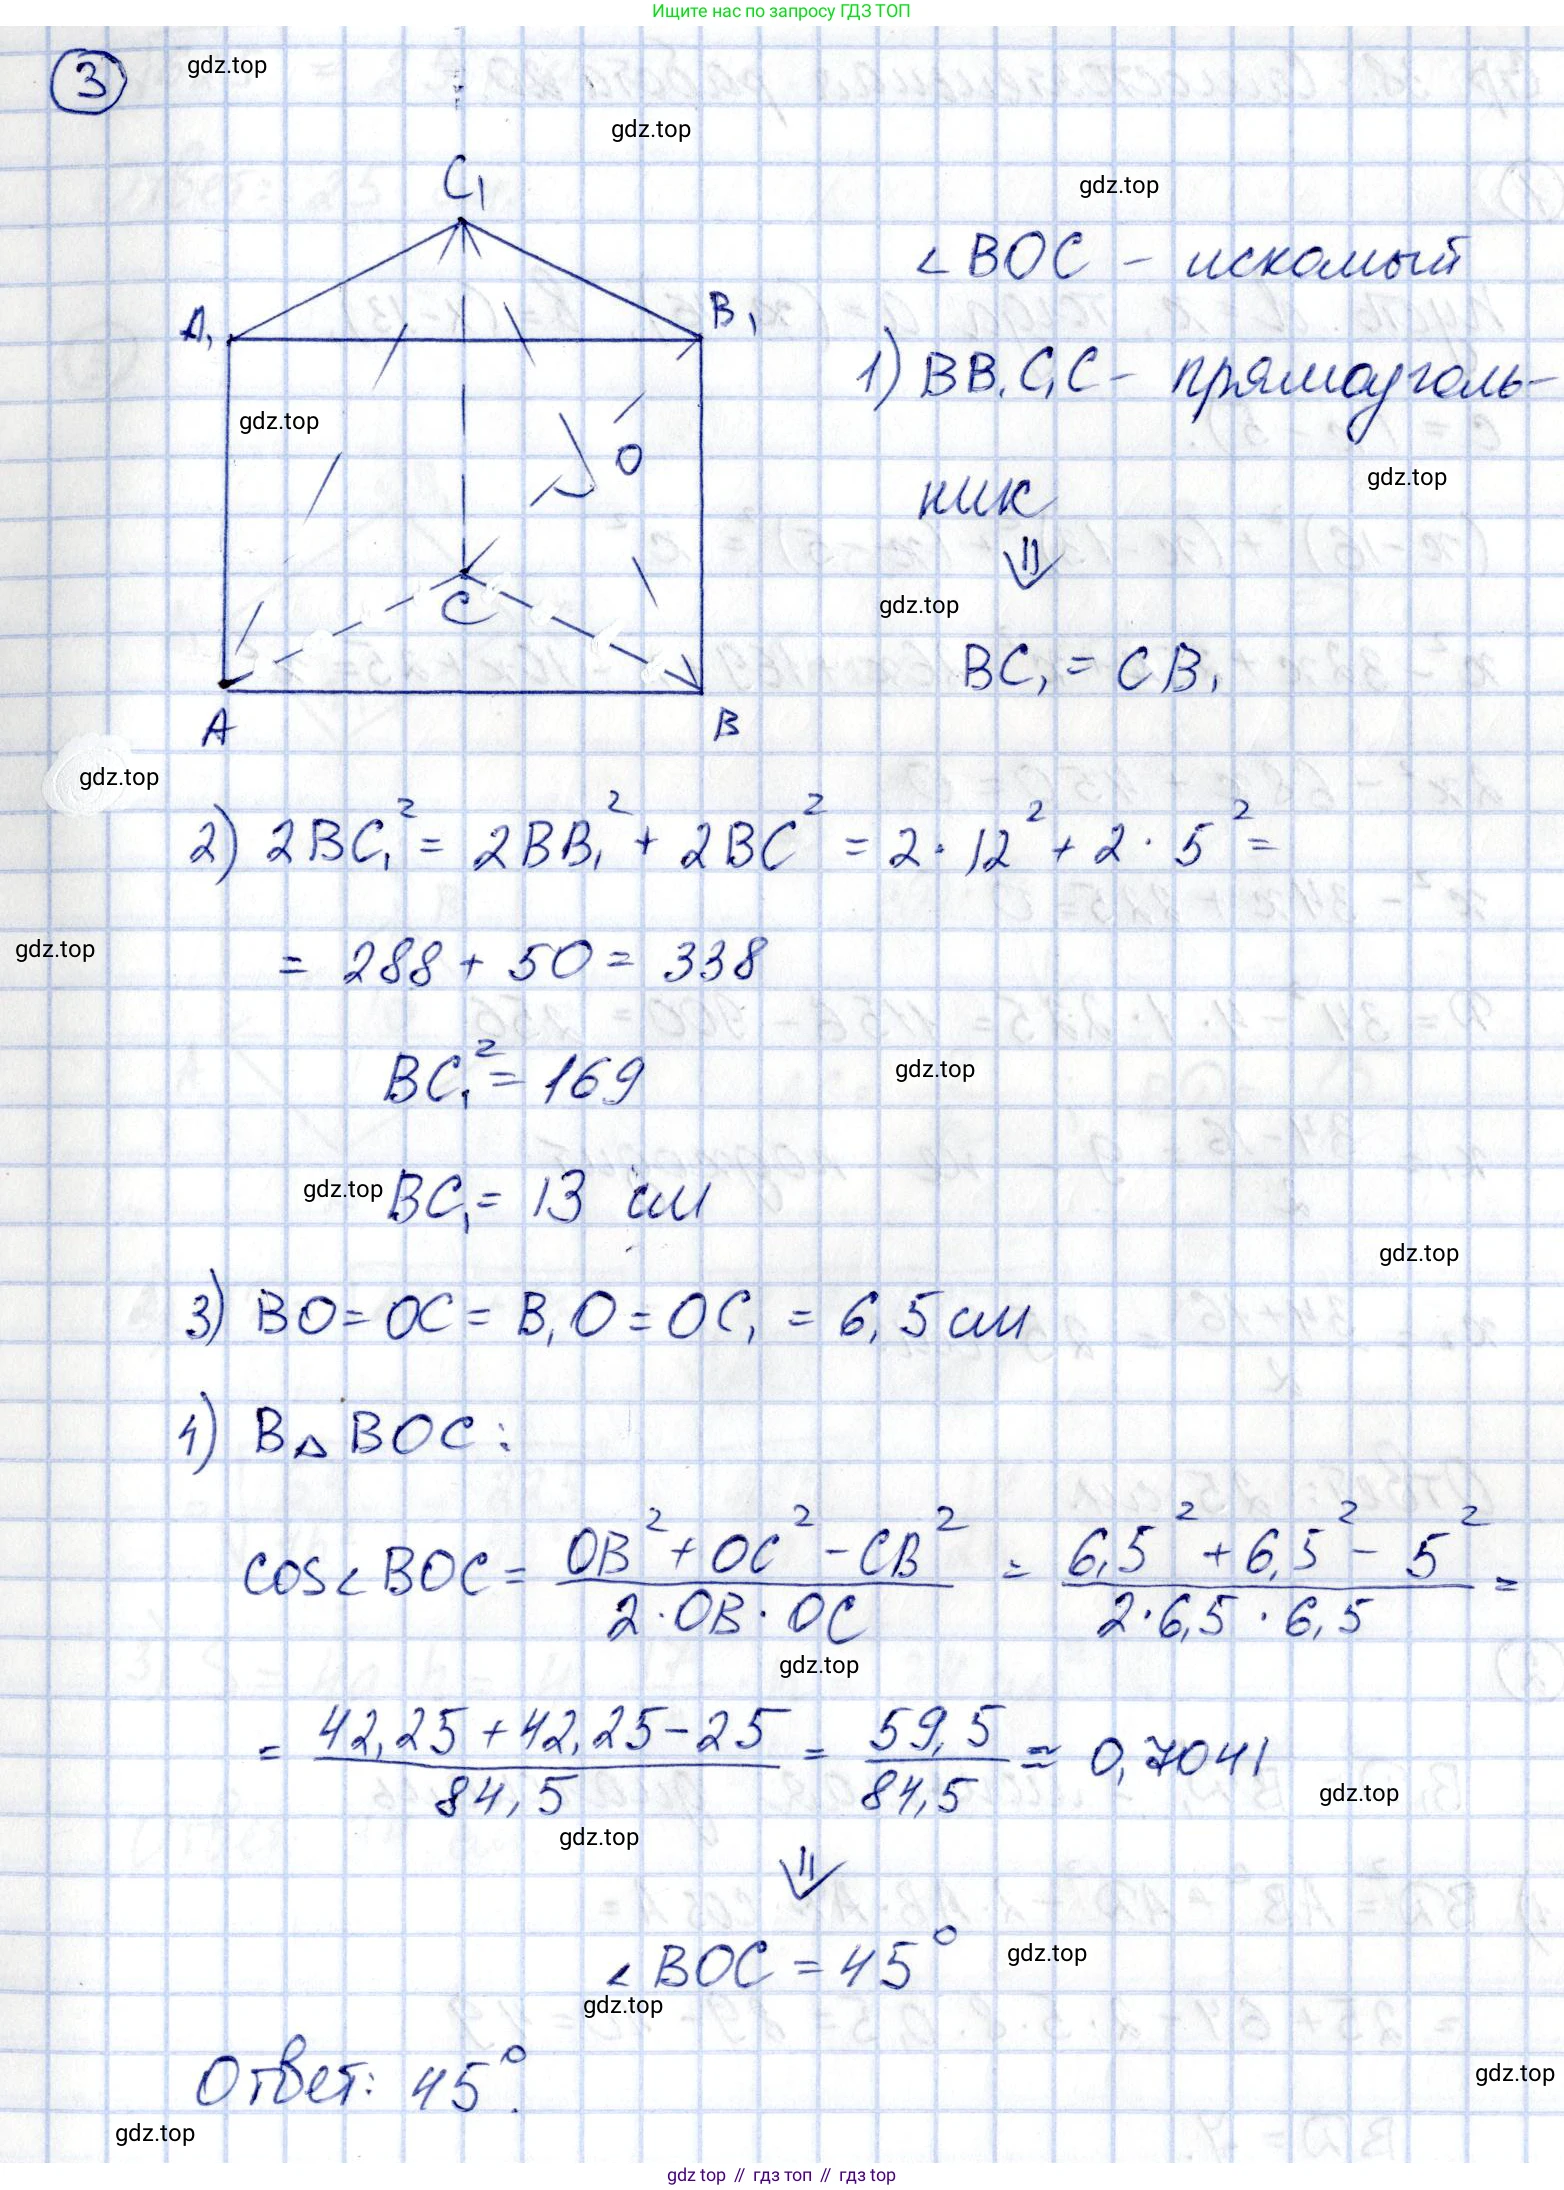 Ищите нас по запросу ГДЗ ТОП
3
gdz.top
gdz.top
C₁
gdz.top
∠BOC - искомый
A₁
B₁
1) BB₁C₁C - прямоуголь-
gdz.top
O
gdz.top
ник
⇓
C
gdz.top
BC₁ = CB₁
A
B
gdz.top
2) 2BC₁² = 2BB₁² + 2BC² = 2·12² + 2·5² =
gdz.top
= 288 + 50 = 338
BC₁² = 169
gdz.top
gdz.top
BC₁ = 13 см
gdz.top
3) BO = OC = B₁O = OC₁ = 6,5 см
4) В △ BOC:
cos∠BOC = (OB² + OC² - CB²)/(2·OB·OC) = (6,5² + 6,5² - 5²)/(2·6,5·6,5) =
gdz.top
= (42,25 + 42,25 - 25)/84,5 = 59,5/84,5 ≈ 0,7041
gdz.top
gdz.top
⇓
∠BOC = 45°
gdz.top
gdz.top
Ответ: 45°.
gdz.top
gdz.top
gdz top // гдз топ // гдз top